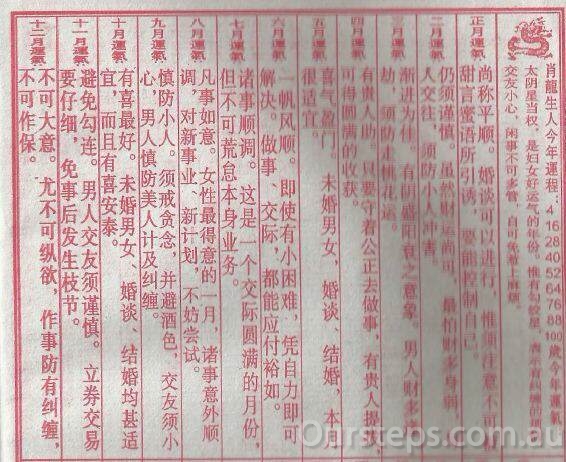 肖龍生人今年運程：4 16 28 40 52 64 76 88 100歲今年運氣
太阴星当权，是妇女好运气的年份。惟有勾绞星，表示有纠缠的
交友小心，闲事不可多管，自可免惹上麻烦。
正月運氣
尚称平顺。婚谈可以进行，惟须注意不可
甜言蜜语所引诱，要能控制自己。
二月運氣
仍须谨慎。虽然财运尚可，最怕财多身弱，
人交往，须防小人冲害。
三月運氣
渐进为佳。有阴盛阳衰之意象。男人财多
劫，须防走桃花运。
四月運氣
有贵人助。只要守着公正去做事，有贵人提拔，
可得圆满的收获。
五月運氣
喜气盈门。未婚男女，婚谈、结婚，本月
很适宜。
六月運氣
一帆风顺。即使有小困难，凭自力即可
解决。做事、交际，都能应付裕如。
七月運氣
诸事顺调。这是一个交际圆满的月份，
但不可荒怠本身业务。
八月運氣
凡事如意。女性最得意的一月，诸事意外顺
调，对新事业、新计划，不妨尝试。
九月運氣
慎防小人。须戒贪念，并避酒色，交友须小
心，男人慎防美人计及纠缠。
十月運氣
有喜最好。未婚男女、婚谈、结婚均甚适
宜，而且有喜安泰。
十一月運氣
避免勾连。男人交友须谨慎。立券交易
要仔细，免事后发生枝节。
十二月運氣
不可大意。尤不可纵欲，作事防有纠缠，
不可作保。
Oursteps.com.au